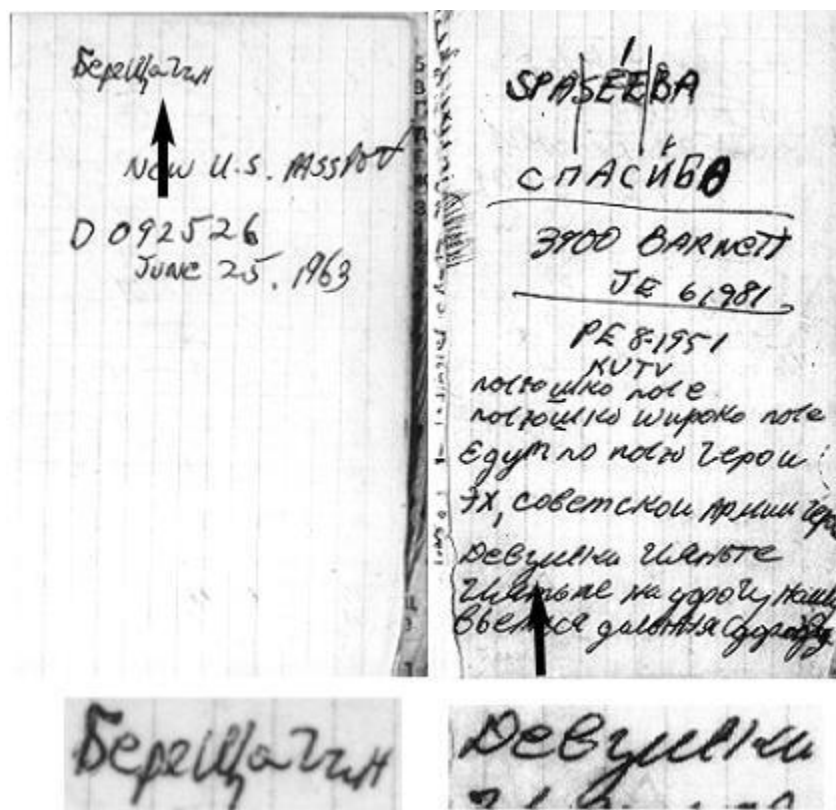 Берещагин
New U.S. PASSPORT
D 092526
JUNE 25, 1963
SPASEEBA
СПАСИБО
3900 BARNETT
JE 61981
PE 8-1951
KUTV
полюшко поле
полюшко широко поле
Едут по полю герои
Эх, советской Армии
Девушки гляньте
Гляньте на дорогу
Вьется дальняя
Берещагин
Девушки